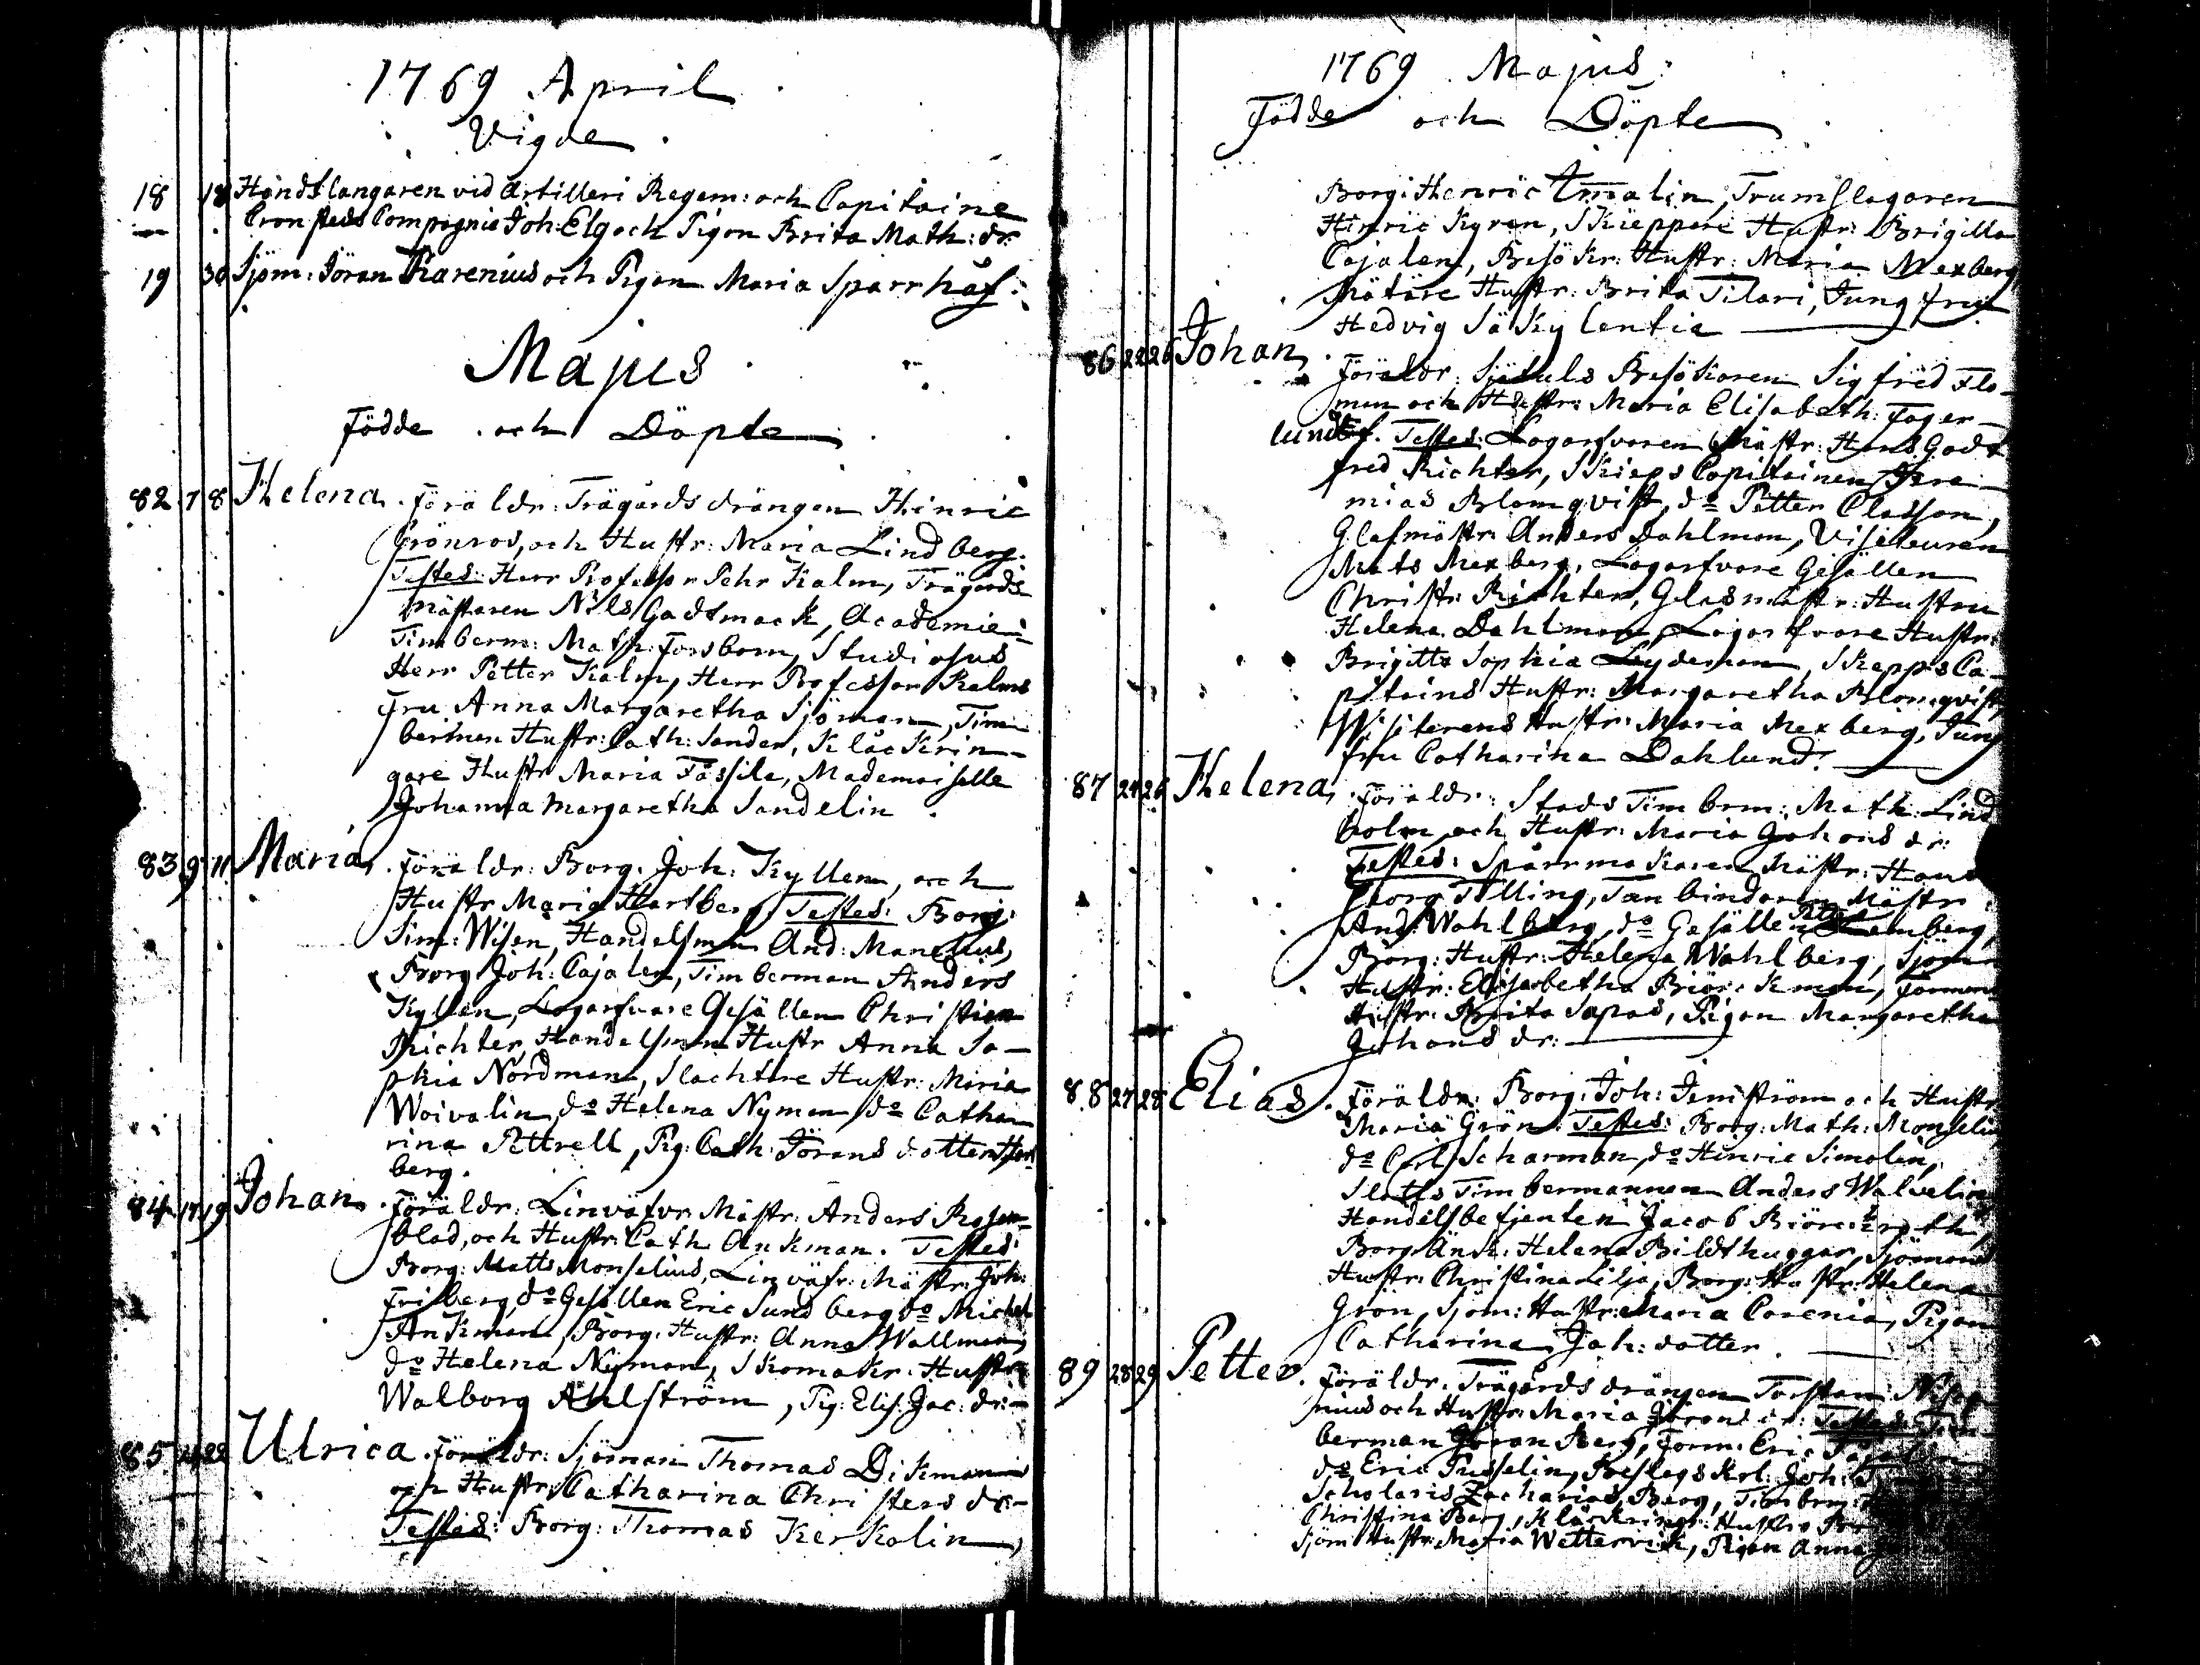 1769 April
Vigde
18 18 Handtlangaren vid Artilleri Regem: och Capitaine
Cronsteds Compagnie Joh: Elg och Pigan Brita Math: dr:
19 30 Sjöm: Jöran Karenius och Pigan Maria Sparrhåf:
Majus
Födde och Döpte
82 7 8 Helena. Föräldr: Trägårds drängen Hinric
Grönros, och Hustr: Maria Lindberg.
Testes: Herr Professor Pehr Kalm, Trägårds
mästaren Nils Gadtmack, Academiæ
Timberm: Math: Forsbom, Studiosus
Herr Petter Kalm, Herr Professor Kalms
Fru Anna Margaretha Sjöman, Tim-
berman Hustr: Cath: Sander, Klåckrin-
gare Hustr Maria Fässila, Mademoiselle
Johanna Margaretha Sandelin.
83 9 11 Maria. Föräldr: Borg. Joh: Kyllen, och
Hustr Maria Hartberg Testes: Borg:
Sim: Wisen, Handelsman And: Mancelius,
Borg Joh: Cajalen, Timberman Anders
Kyllen, Logarfvare Gesällen Christian
Richter, Handelsman Hustr Anna So-
phia Nordman, Slachtare Hustr: Maria
Woivalin, do Helena Nyman, do Catha-
rina Pettrell, Pig: Cath: Jörans dotter
berg.
84 17 19 Johan. Föräldr: Linväfvr Mästr: Anders Rosen-
blad, och Hustr: Cath Ankman. Testes:
Borg: Matts Monselius, Linväfr: Mästr: Joh:
Friberg, do Gesällen Eric Sundberg, do Michel
Ankman, Borg: Hustr: Anna Wallman,
do Helena Nyman, Skomakr: Hustr
Walborg Ahlström, Pig: Elis: Jac: dr:
85 22 Ulrica. Föräldr: Sjöman Thomas Dikman
och Hustr Catharina Christers dr:
Testes: Borg: Thomas Kerkolin,
1769 Majus
Födde och Döpte
Borg: Henric Amalin, Trumslagaren
Hinric Kyren, Skieppare Hustr: Brigitta
Cajalen, Besökr: Hustr: Maria Mexberg
Mätare Hustr: Brita Tilari, Jungfru
Hedvig Säkylentia
86 22 26 Johan. Föräldr: Sjötuls Besökaren Sigfrid Flo-
man och Hustr: Maria Elisabeth: Fager-
lund. Testes: Logarfvaren Mästr: Hans Godt
fred Richter, Skieps Capitainen Jere-
mias Blomqvist, do Petter Classon,
Glasmästr: Anders Dahlman, Visiteuren
Mats Mexberg, Logarfvare Gesällen
Christ: Richter, Glasmästr: Hustru
Helena Dahlman, Logarfvare Hustr:
Brigitta Sophia Leydeman, Skepps Ca-
pitains Hustr: Margaretha Blomqvist,
Visiterens Hustr: Maria Mexberg, Jung
fru Catharina Dahlund.
87 24 26 Helena. Föräldr: Stads Timbrm: Math: Lind
holm, och Hustr: Maria Johans dr:
Testes: Spårrmakaren Mästr: Hans
Georg Tilling, Tunbindaren Mästr:
And: Wahlberg, do Gesällen Petter Lemberg,
Borg: Hustr: Helena Wahlberg, Sjöm
Hustr: Elisabetha Björkman, Formans
Hustr: Brita Sapas, Pigan Margaretha
Johans dr:
88 27 28 Elias. Föräldr: Borg: Joh: Jernström och Hustr
Maria Grön. Testes: Borg: Math: Monselin
do Carl Scharman, do Hinric Simolin,
Slotts Timbermannen Anders Walvelin
Handelsbetjenten Jacob Björcroth,
Borg: Änk: Helena Bildthuggar, Sjömans
Hustr: Christina Lilja, Borg: Hustr: Helena
Grön, Sjöm: Hustr: Maria Carenia, Pigan
Catharina Joh: dotter.
89 28 29 Petter. Föräldr: Trägårds drängen Torstan
och Hustr: Maria Jörans dr: Testes: Tim-
berman Jöran Berg, Form: Eric
do Eric Pusselin, Beslags Krl: Joh:
Scholaris Zacharias Berg, Timbrm:
Christina Berg, Klåckringr: Hustr
Sjöm Hustr: Maria Wettervik, Pigan Anna